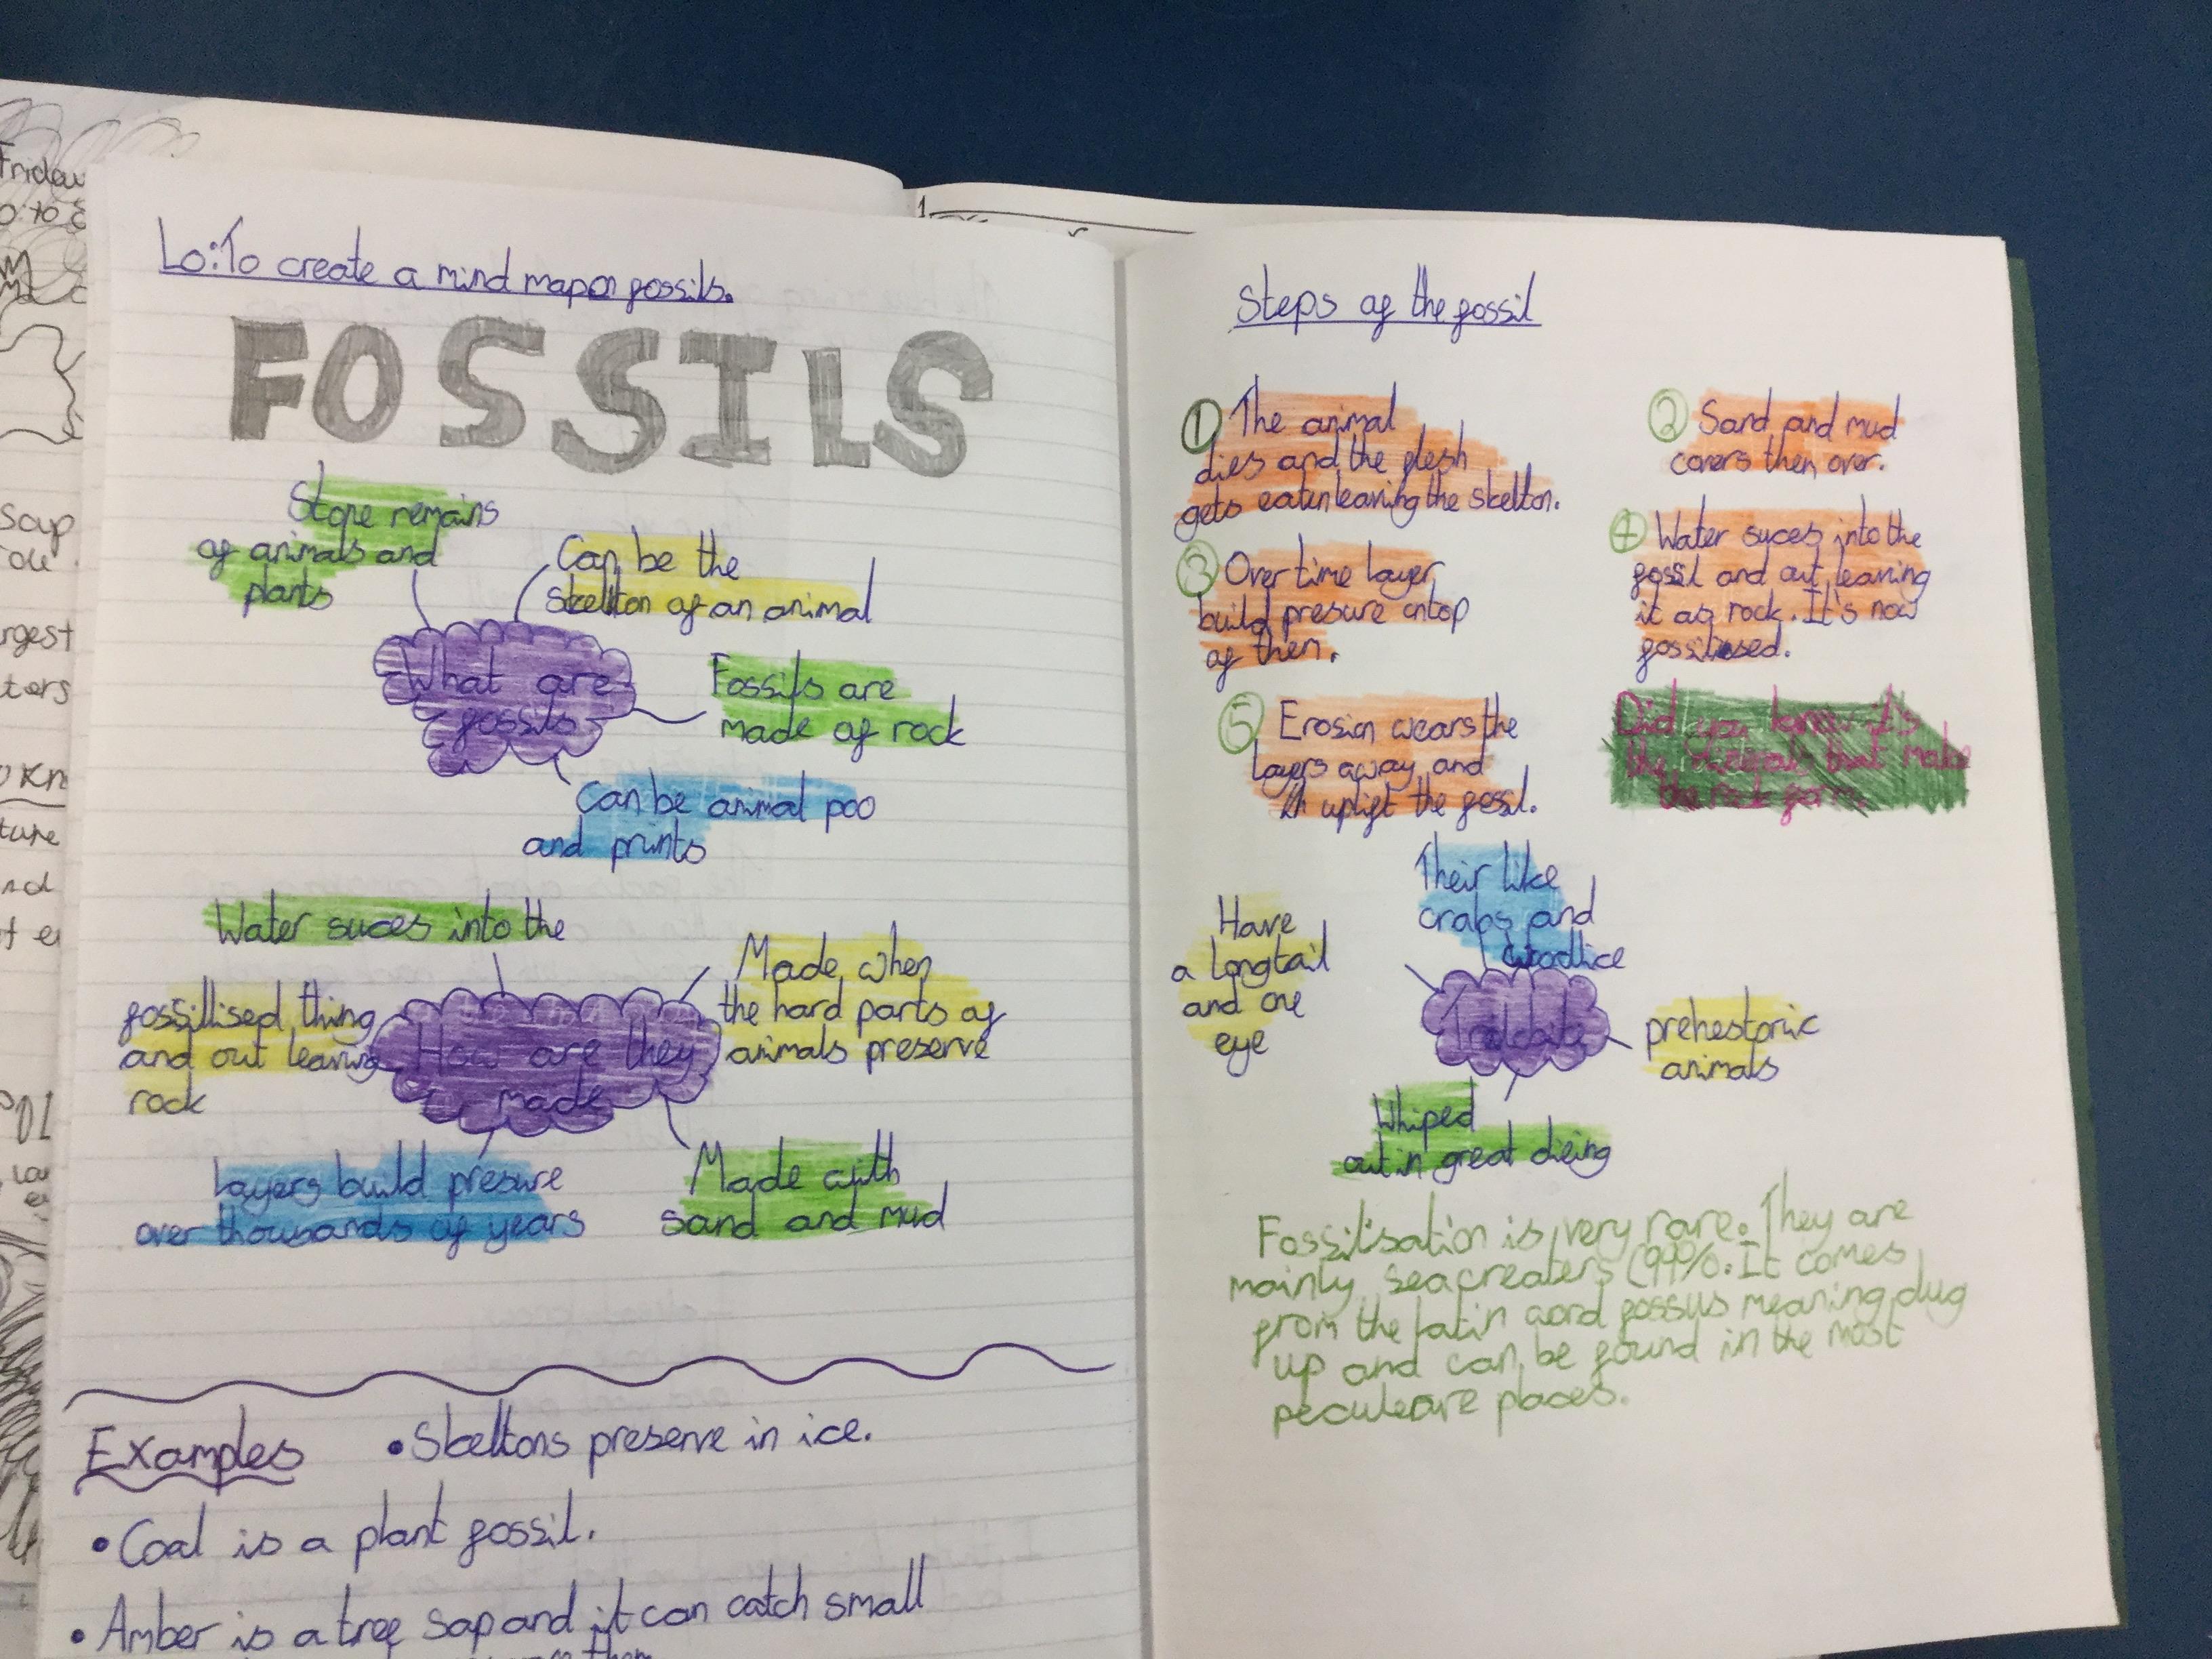 Friday
0: to
Soup
rgest
tors
ture
Lo: To create a mind map on fossils.
FOSSILS
Stone remains
of animals and
plants
Can be the
skellton of an animal
What are
fossils
Fossils are
made of rock
Can be animal poo
and prints
Water suces into the
fossillised thing
and out leaving
rock
How are they
made
Made when
the hard parts of
animals preserve
Layers build presure
over thousands of years
Made with
sand and mud
Examples
• Skeltons preserve in ice.
• Coal is a plant fossil.
• Amber is a tree sap and it can catch small
Steps of the fossil
1 The animal
dies and the flesh
gets eaten leaving the skelton.
2 Sand and mud
covers them over.
3 Over time layer
build presure ontop
of them.
4 Water suces into the
fossil and out leaving
it as rock. It's now
fossilised.
5 Erosion wears the
layers away and
uplift the fossil.
Did you know it's
the that make
the rock form.
Their like
crabs and
woodlice
Have
a long tail
and one
eye
prehestoric
animals
Whiped
out in great dieing
Fossilisation is very rare. They are
mainly seacreaters (99%. It comes
from the latin word fossus meaning dug
up and can be found in the most
peculeare places.